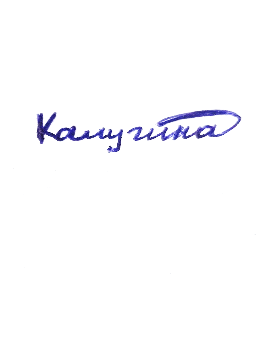 Калугина